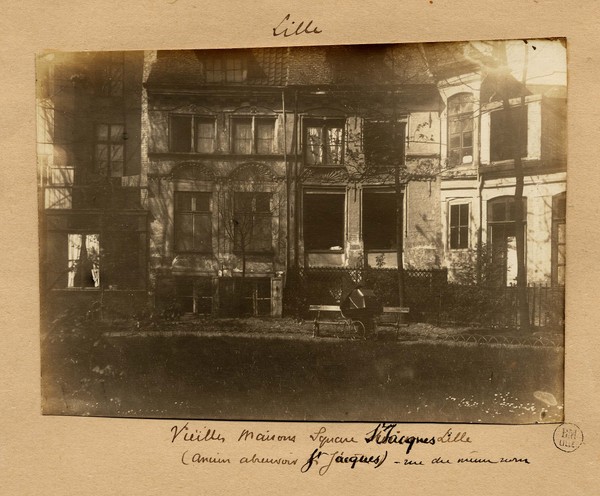 Lille
Vieilles Maisons Square St Jacques Lille
(Ancien abreuvoir St Jacques) - rue du même nom